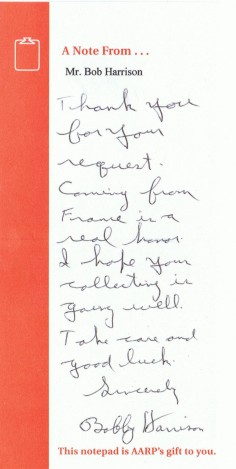 A Note From . . .
Mr. Bob Harrison
Thank you
for your
request.
Coming from
France is a
real honor.
I hope your
collecting is
going well.
Take care and
good luck.
Sincerely
Bobby Harrison
This notepad is AARP's gift to you.